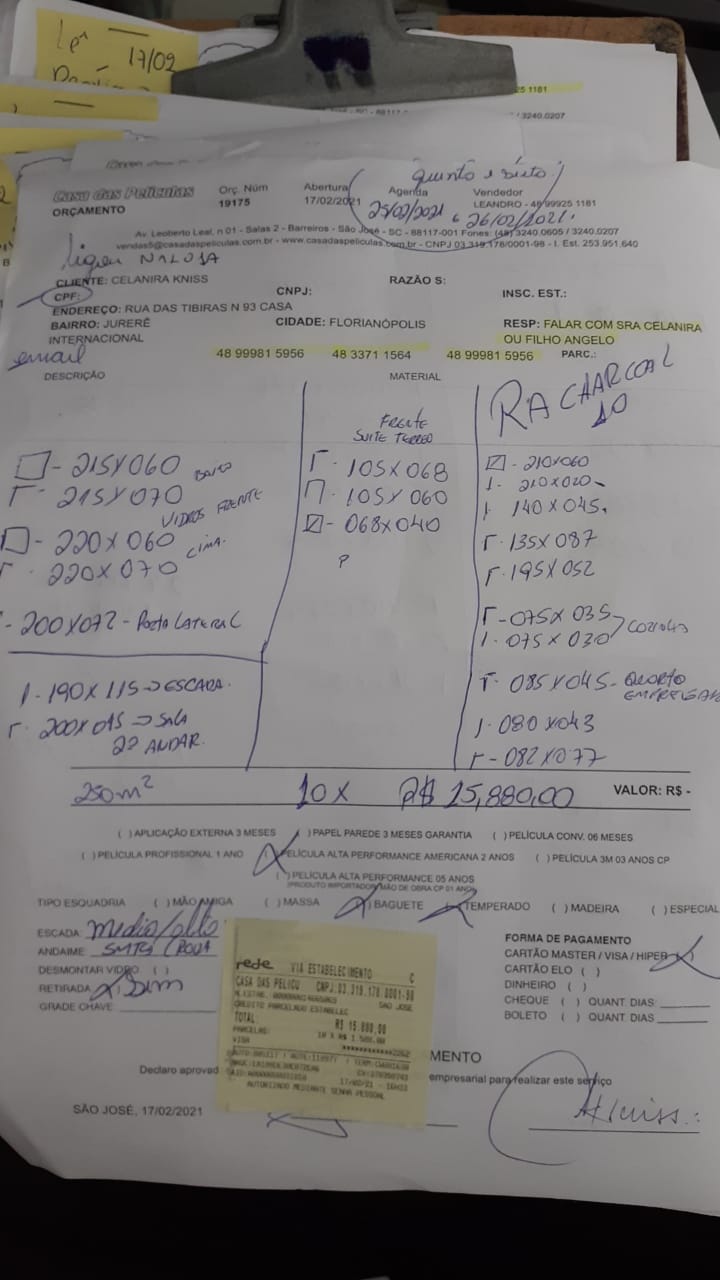 Lpª
17/02
25 1181
/ 3240.0207
Casa das Películas
ORÇAMENTO
Orç. Núm
19175
Abertura
17/02/2021
quinta e sexta!
Agenda
25/02/2021 e 26/02/2021.
Vendedor
LEANDRO - 48 99925 1181
Av. Leoberto Leal, n 01 - Salas 2 - Barreiros - São José - SC - 88117-001 Fones: (48) 3240.0605 / 3240.0207
vendas5@casadaspeliculas.com.br - www.casadaspeliculas.com.br - CNPJ 03.319.178/0001-98 - I. Est. 253.951.640
CLIENTE: CELANIRA KNISS
CPF:
CNPJ:
RAZÃO S:
INSC. EST.:
ENDEREÇO: RUA DAS TIBIRAS N 93 CASA
BAIRRO: JURERÊ INTERNACIONAL
CIDADE: FLORIANÓPOLIS
RESP: FALAR COM SRA CELANIRA
OU FILHO ANGELO
email
48 99981 5956 48 3371 1564 48 99981 5956 PARC.:
DESCRIÇÃO
MATERIAL
RA CHARCOAL
10
- 215X060 BAIXO
- 215X070
VIDROS FRENTE
- 220X060 CIMA.
- 220X070
- 200X072 - PORTA LATERAL
1- 190X115 → ESCADA.
200X015 → SALA
2º ANDAR.
FRENTE
SUITE TERREO
- 105X068
- 105X060
- 068X040
P
- 210X060
1- 210X020
1- 140X045.
- 135X087
- 195X052
- 075X035
1- 075X030
COZINHA
- 085X045 - QUARTO
EMPREGADA
1- 080X043
- 082X077
250m² 10X R$ 15,880,00 VALOR: R$ -
( ) APLICAÇÃO EXTERNA 3 MESES ( ) PAPEL PAREDE 3 MESES GARANTIA ( ) PELÍCULA CONV. 06 MESES
( ) PELÍCULA PROFISSIONAL 1 ANO (X) PELÍCULA ALTA PERFORMANCE AMERICANA 2 ANOS ( ) PELÍCULA 3M 03 ANOS CP
( ) PELÍCULA ALTA PERFORMANCE 05 ANOS
(PRODUTO IMPORTADO/MÃO DE OBRA CP 01 ANO)
TIPO ESQUADRIA ( ) MÃO AMIGA ( ) MASSA (X) BAGUETE (X) TEMPERADO ( ) MADEIRA ( ) ESPECIAL
ESCADA: media/alta
ANDAIME
DESMONTAR VIDRO ( )
RETIRADA (X) Sim
GRADE CHAVE
FORMA DE PAGAMENTO
CARTÃO MASTER / VISA / HIPER (X)
CARTÃO ELO ( )
DINHEIRO ( )
CHEQUE ( ) QUANT. DIAS
BOLETO ( ) QUANT. DIAS
rede VIA ESTABELECIMENTO C
CASA DAS PELICU CNPJ.03.319.178.0001-98
SAO JOSE
CREDITO PARCELADO ESTABELEC
TOTAL: R$ 15.880,00
PARCELAS: 10 X R$ 1.588,00
VISA
17/02/21
AUTORIZADO MEDIANTE SENHA PESSOAL
MENTO
Declaro aprovad
empresarial para realizar este serviço
SÃO JOSÉ, 17/02/2021